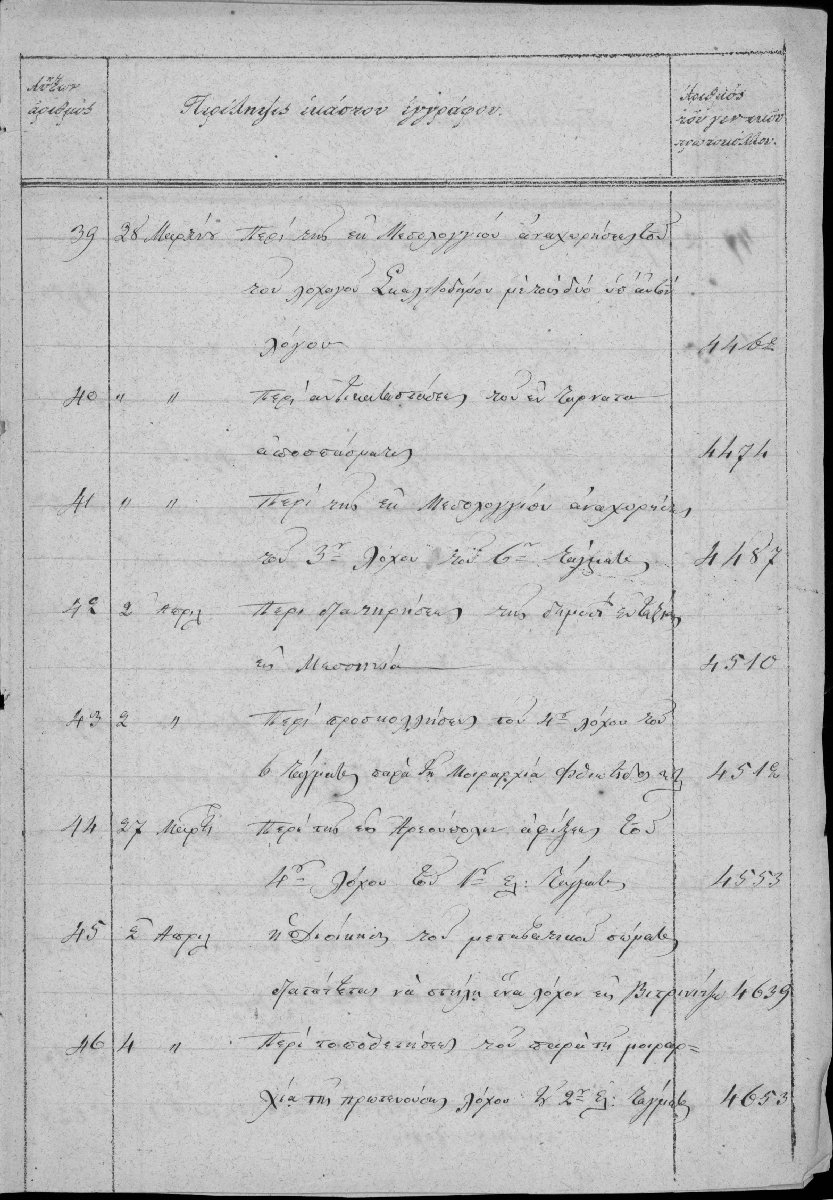 Αὔξων ἀριθμὸς
Περίληψις ἑκάστου ἐγγράφου.
Ἀριθμὸς τοῦ γενικοῦ πρωτοκόλλου.
39 28 Μαρτίου Περὶ τῆς ἐκ Μεσολογγίου ἀναχωρήσεως τοῦ
τοῦ λοχαγοῦ Σκαλτσοδήμου μὲ τοὺς δύο ὑπ' αὐτὸν
λόχους 4462
40 〃 〃 Περὶ ἀντικαταστάσεως τοῦ ἐν
ἀποσπάσματος 4474
41 〃 〃 Περὶ τῆς ἐκ Μεσολογγίου ἀναχωρήσεως
τοῦ 3ου λόχου τοῦ 6ου τάγματος 4487
42 2 Ἀπριλ Περὶ διατηρήσεως τῆς δημοσ εὐταξίας
εἰς Μεσσηνία 4510
43 2 〃 Περὶ προσκολλήσεως τοῦ 4ου λόχου τοῦ
6 τάγματος παρὰ τῇ Μοιραρχίᾳ Φθιώτιδος κτλ 4512
44 27 Μαρτ Περὶ τῆς εἰς Ἀρεούπολιν ἀφίξεως τοῦ
4ου λόχου τοῦ 1ου ἐλ: τάγματος 4553
45 2 Ἀπριλ Ἡ Διοίκησις τοῦ μεταβατικοῦ σώματος
διατάττεται νὰ στείλῃ ἕνα λόχον εἰς Βιτρινίτζα 4639
46 4 〃 Περὶ τοποθετήσεως τοῦ παρὰ τῇ μοιραρ=
χίᾳ τῆς πρωτευούσης λόχου τ 2ου ἐλ: τάγματος 4653